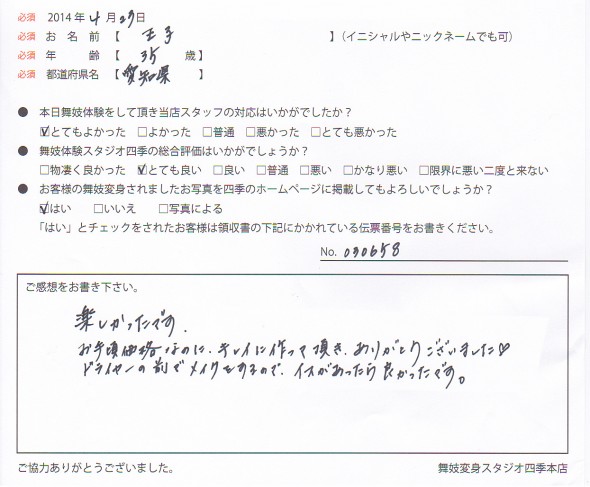 必須 2014年4月29日
必須 お名前【 王子 】(イニシャルやニックネームでも可)
必須 年齢【 35 歳】
必須 都道府県名【 愛知県 】
● 本日舞妓体験をして頂き当店スタッフの対応はいかがでしたか?
☑とてもよかった □よかった □普通 □悪かった □とても悪かった
● 舞妓体験スタジオ四季の総合評価はいかがでしょうか?
□物凄く良かった ☑とても良い □良い □普通 □悪い □かなり悪い □限界に悪い二度と来ない
● お客様の舞妓変身されましたお写真を四季のホームページに掲載してもよろしいでしょうか?
☑はい □いいえ □写真による
「はい」とチェックをされたお客様は領収書の下記にかかれている伝票番号をお書きください。
No. 030658
ご感想をお書き下さい。
楽しかったです.
お手頃価格なのに、キレイに作って頂き、ありがとうございました♡
ドライヤーの前でメイクをするので、イスがあったら良かったです。
ご協力ありがとうございました。 舞妓変身スタジオ四季本店